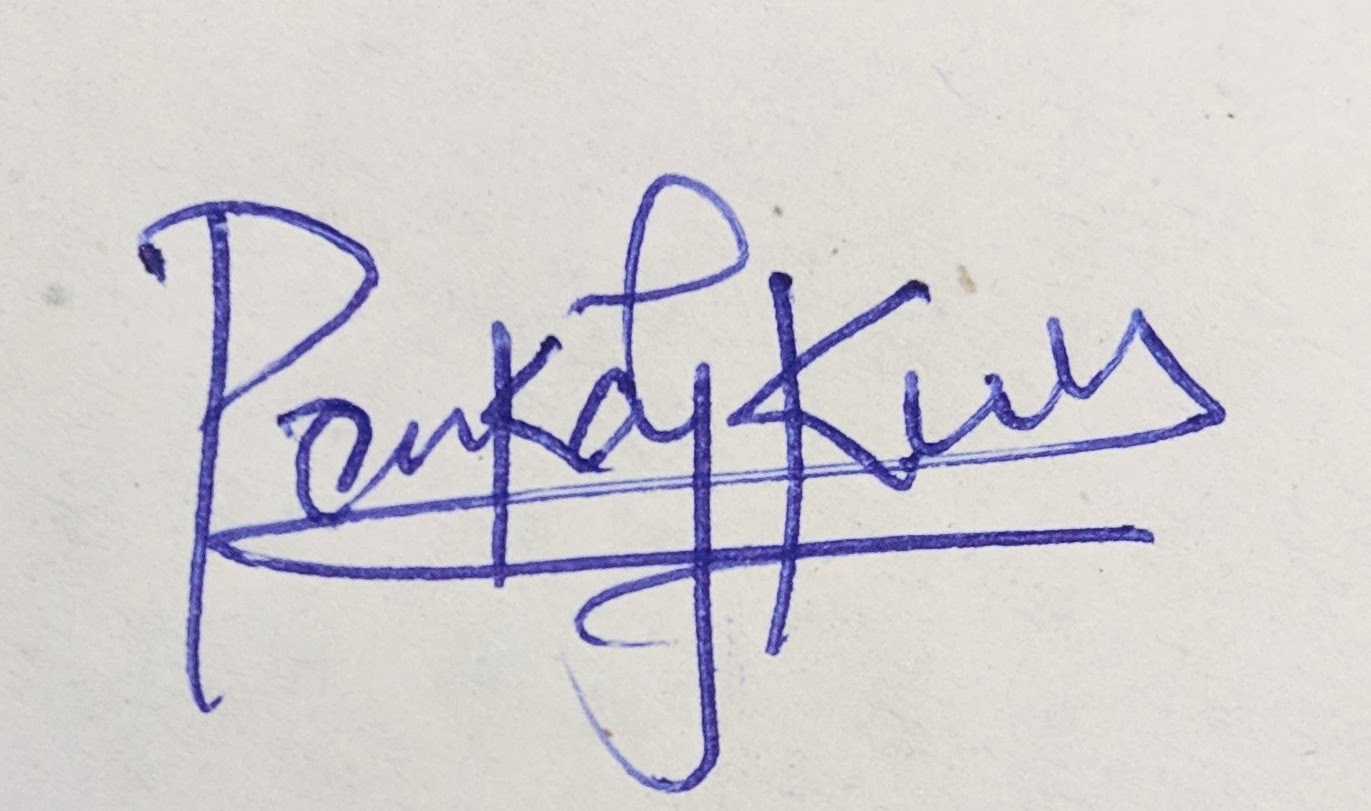 Pankaj Kum